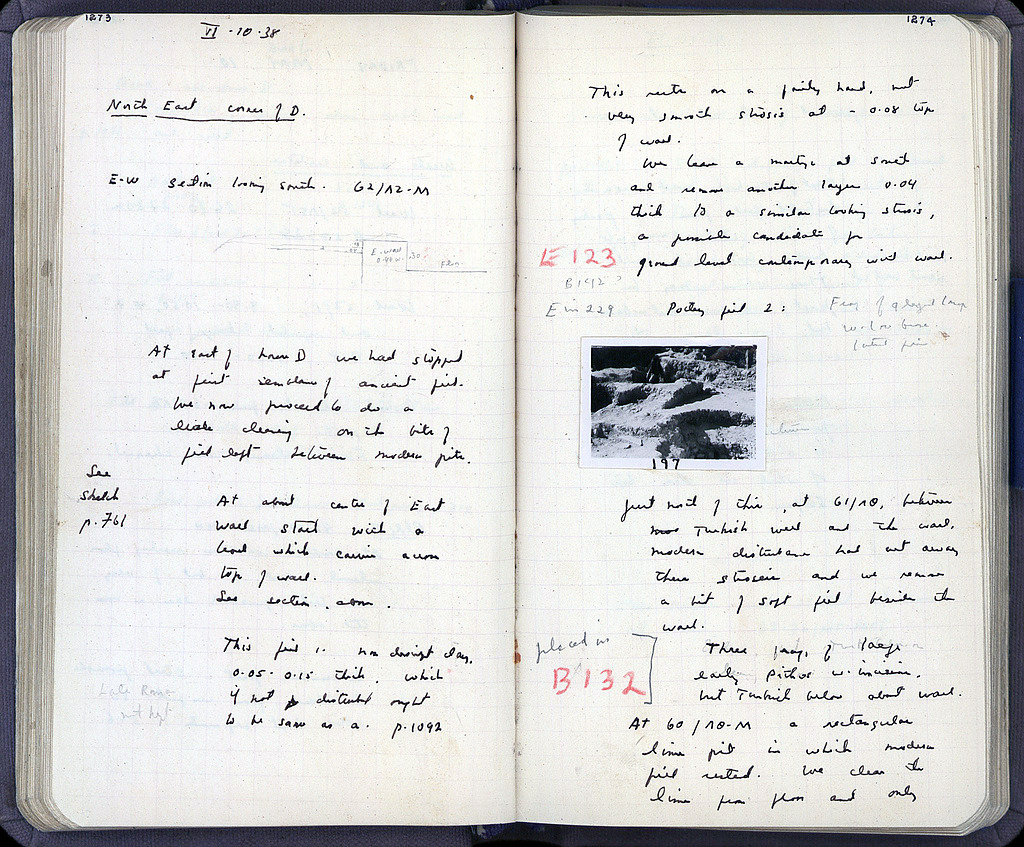 1273
VI-10-38
North East corner of D.
E-W section looking south. 62/12-M
E-wall
0.40 w.
.30
Floor
At East of house D we had stopped
at first semblance of ancient fill.
We now proceed to do a
little cleaning on the bits of
fill left between modern pits.
See
Sketch
p. 761
At about center of East
wall start with a
level which carries across
top of wall.
See section, above.
This fill is non descript clay,
0.05-0.15 thick, which
if not disturbed ought
to be same as a. p. 1092
Late Roman
not kept
1274
This rests on a fairly hard, not
very smooth strosis at -0.08 top
of wall.
We leave a martyr at south
and remove another layer 0.04
thick to a similar looking strosis,
a possible candidate for
ground level contemporary with wall.
E 123
B 142
E in 229
Pottery fill 2:
Frag. of glazed lamp
w. low base.
197
Just north of this, at 61/18, between
Turkish well and the wall,
modern disturbance had cut away
these stroseis and we remove
a bit of soft fill beside the
wall.
placed in
B 132
Three frag. of large
early Pithos w. incision,
but Turkish below about wall.
At 60/18-M a rectangular
lime pit in which modern
fill rested. We clear the
lime from floor and only